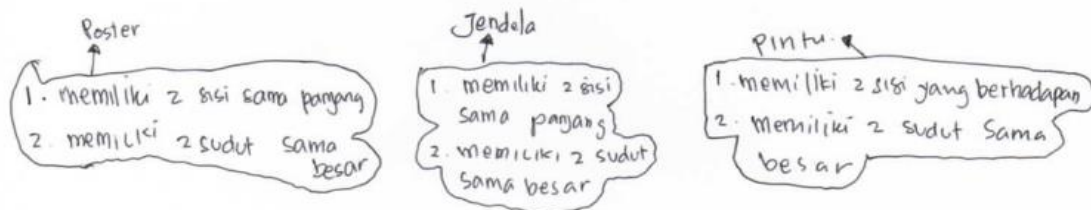 Poster
1. memiliki 2 sisi sama panjang
2. memiliki 2 sudut sama
besar
Jendela
1. memiliki 2 sisi
sama panjang
2. memiliki 2 sudut
sama besar
Pintu.
1. memiliki 2 sisi yang berhadapan
2. Memiliki 2 sudut Sama
besar